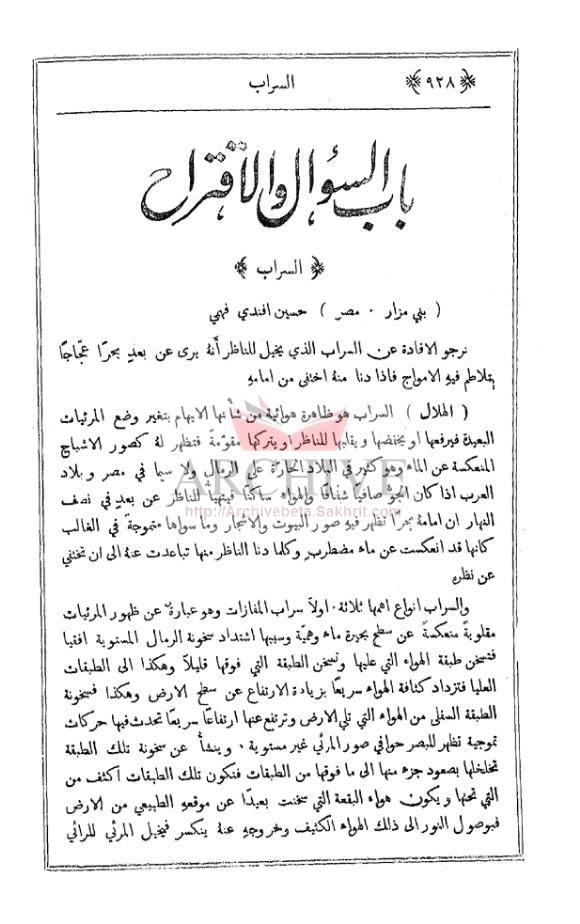 ﴿ ٩٢٨ ﴾ السراب
باب السؤال والاقتراح
﴿ السراب ﴾
( بني مزار . مصر ) حسين افندي فهمي
نرجو الافادة عن السراب الذي يخيل للناظر أنهُ يرى عن بعدٍ بحرًا عجَّاجًا
يتلاطم فيهِ الامواج فاذا دنا منهُ اختفى من امامهِ
( الهلال ) السراب هو ظاهرة هوائية من شأنها الايهام بتغير وضع المرئيات
البعيدة فيرفعها او يخفضها و يقلبها للناظر او يتركها مقومةً فتظهر لهُ كصور الاشباح
المنعكسة عن الماء وهو كثير في البلاد الحارَّة على الرمال ولا سيما في مصر و بلاد
العرب اذا كان الجو صافيًا شفَّافًا والهواء ساكنًا فيتهيأُ للناظر عن بعدٍ في نصف
النهار ان امامهُ بحرًا تظهر فيهِ صور البيوت والاشجار وما سواها متموجة في الغالب
كانها قد انعكست عن ماء مضطرب وكلما دنا الناظر منها تباعدت عنهُ الى ان تختفي
عن نظرهِ
والسراب انواع اهمها ثلاثة . اولاً سراب المفازات وهو عبارة عن ظهور المرئيات
مقلوبةً منعكسةً عن سطح بحيرة ماء وهميَّة وسببها اشتداد سخونة الرمال المستوية افقيا
فتسخن طبقة الهواء التي عليها وتسخن الطبقة التي فوقها قليلاً وهكذا الى الطبقات
العليا فتزداد كثافة الهواء سريعًا بزيادة الارتفاع عن سطح الارض وهكذا فسخونة
الطبقة السفلى من الهواء التي تلي الارض وترتفع عنها ارتفاعًا سريعًا تحدث فيها حركات
تموجية تظهر للبصر حوافي صور المرئي غير مستوية . وينشأُ عن سخونة تلك الطبقة
تخلخلها بصعود جزء منها الى ما فوقها من الطبقات فتكون تلك الطبقات اكثف من
التي تحتها و يكون هواء البقعة التي سخنت بعيدًا عن موقعهِ الطبيعي من الارض
فبوصول النور الى ذلك الهواء الكثيف وخروجهِ عنهُ ينكسر فيخيل المرئي للرائي
ARCHIVE
http://Archivebeta.Sakhrit.com